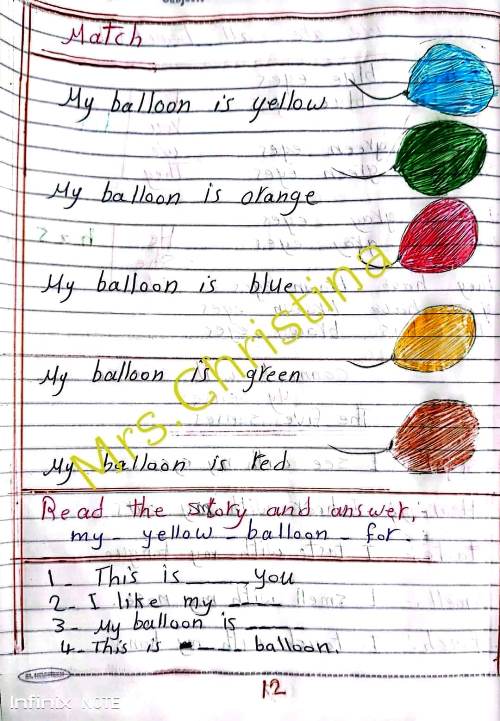 Match
My balloon is yellow
My balloon is orange
My balloon is blue
My balloon is green
My balloon is red
Mrs.Christina
Read the story and answer.
my - yellow - balloon - for.
1- This is ____ you
2- I like my ____
3- My balloon is ____
4- This is ____ balloon.
12
Infinix NOTE